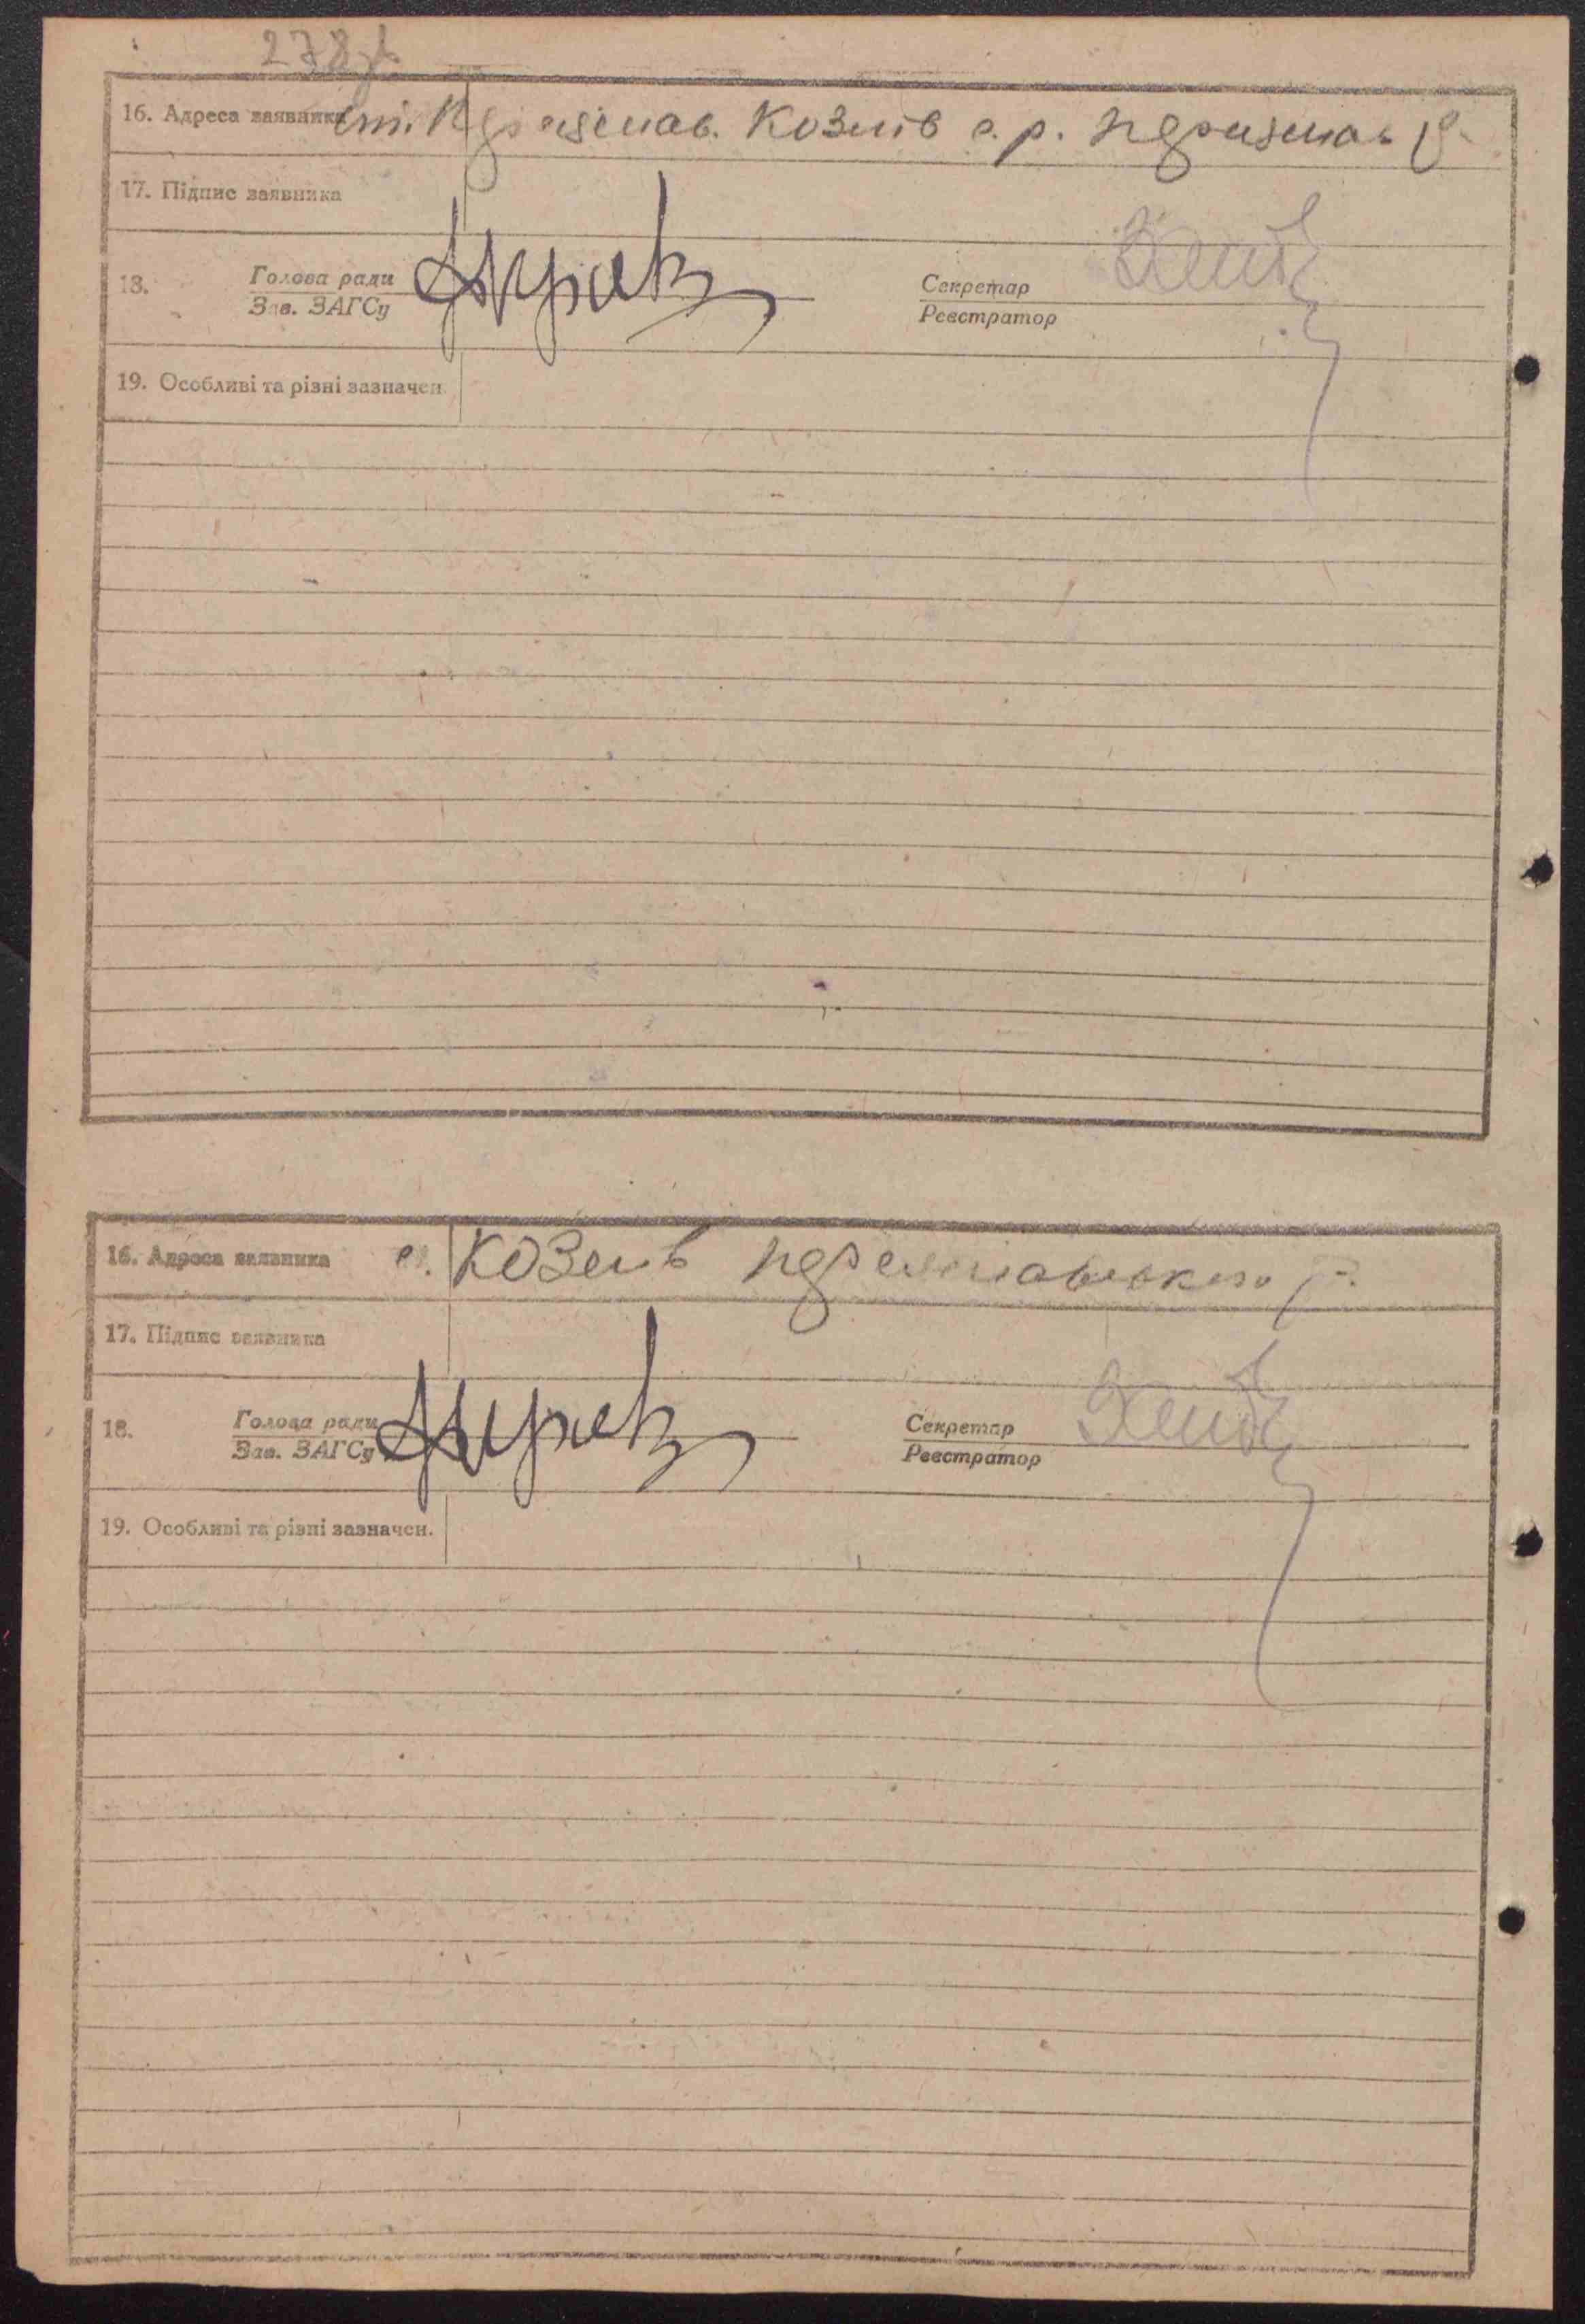 278
16. Адреса заявника ст. Переяслав. Козлів с. р. Переяслав р.
17. Підпис заявника
18. Голова ради Секретар
Зав. ЗАГСу Реєстратор
19. Особливі та різні зазначен.
16. Адреса заявника с. Козлів Переяславського р.
17. Підпис заявника
18. Голова ради Секретар
Зав. ЗАГСу Реєстратор
19. Особливі та різні зазначен.